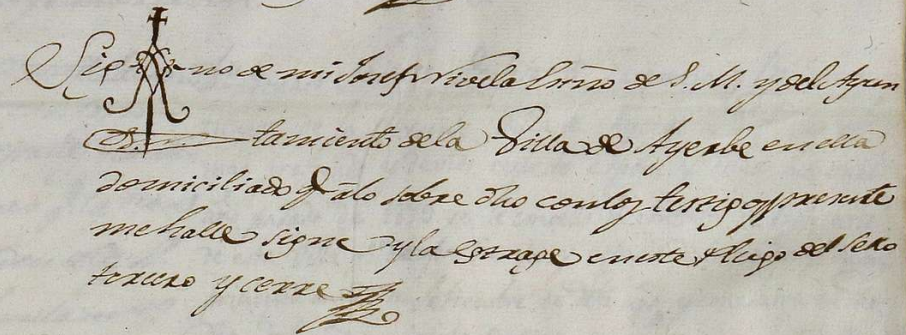 Sig no de mi Josef Vivela Essno de S. M. y del Ayun
tamiento de la Villa de Ayerbe en ella
domiciliado q alo sobre dho con los testigos presente
me halle signe y la estrage en este pliego del sello
tercero y cerre